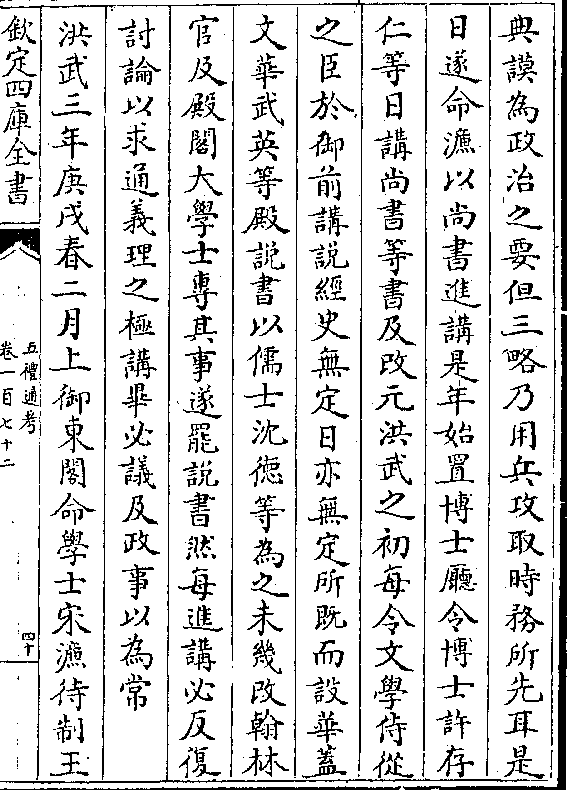 典謨為政治之要但三略乃用兵攻取時務所先耳是
日遂命濂以尚書進講是年始置博士廳令博士許存
仁等日講尚書等書及改元洪武之初每令文學侍從
之臣於御前講說經史無定日亦無定所既而設華蓋
文華武英等殿說書以儒士沈徳等為之未幾改翰林
官及殿閣大學士專其事遂罷說書然每進講必反復
討論以求通義理之極講畢必議及政事以為常
洪武三年庚戌春二月上御東閣命學士宋濂待制王
欽定四庫全書
五禮通考
卷一百七十二
四十